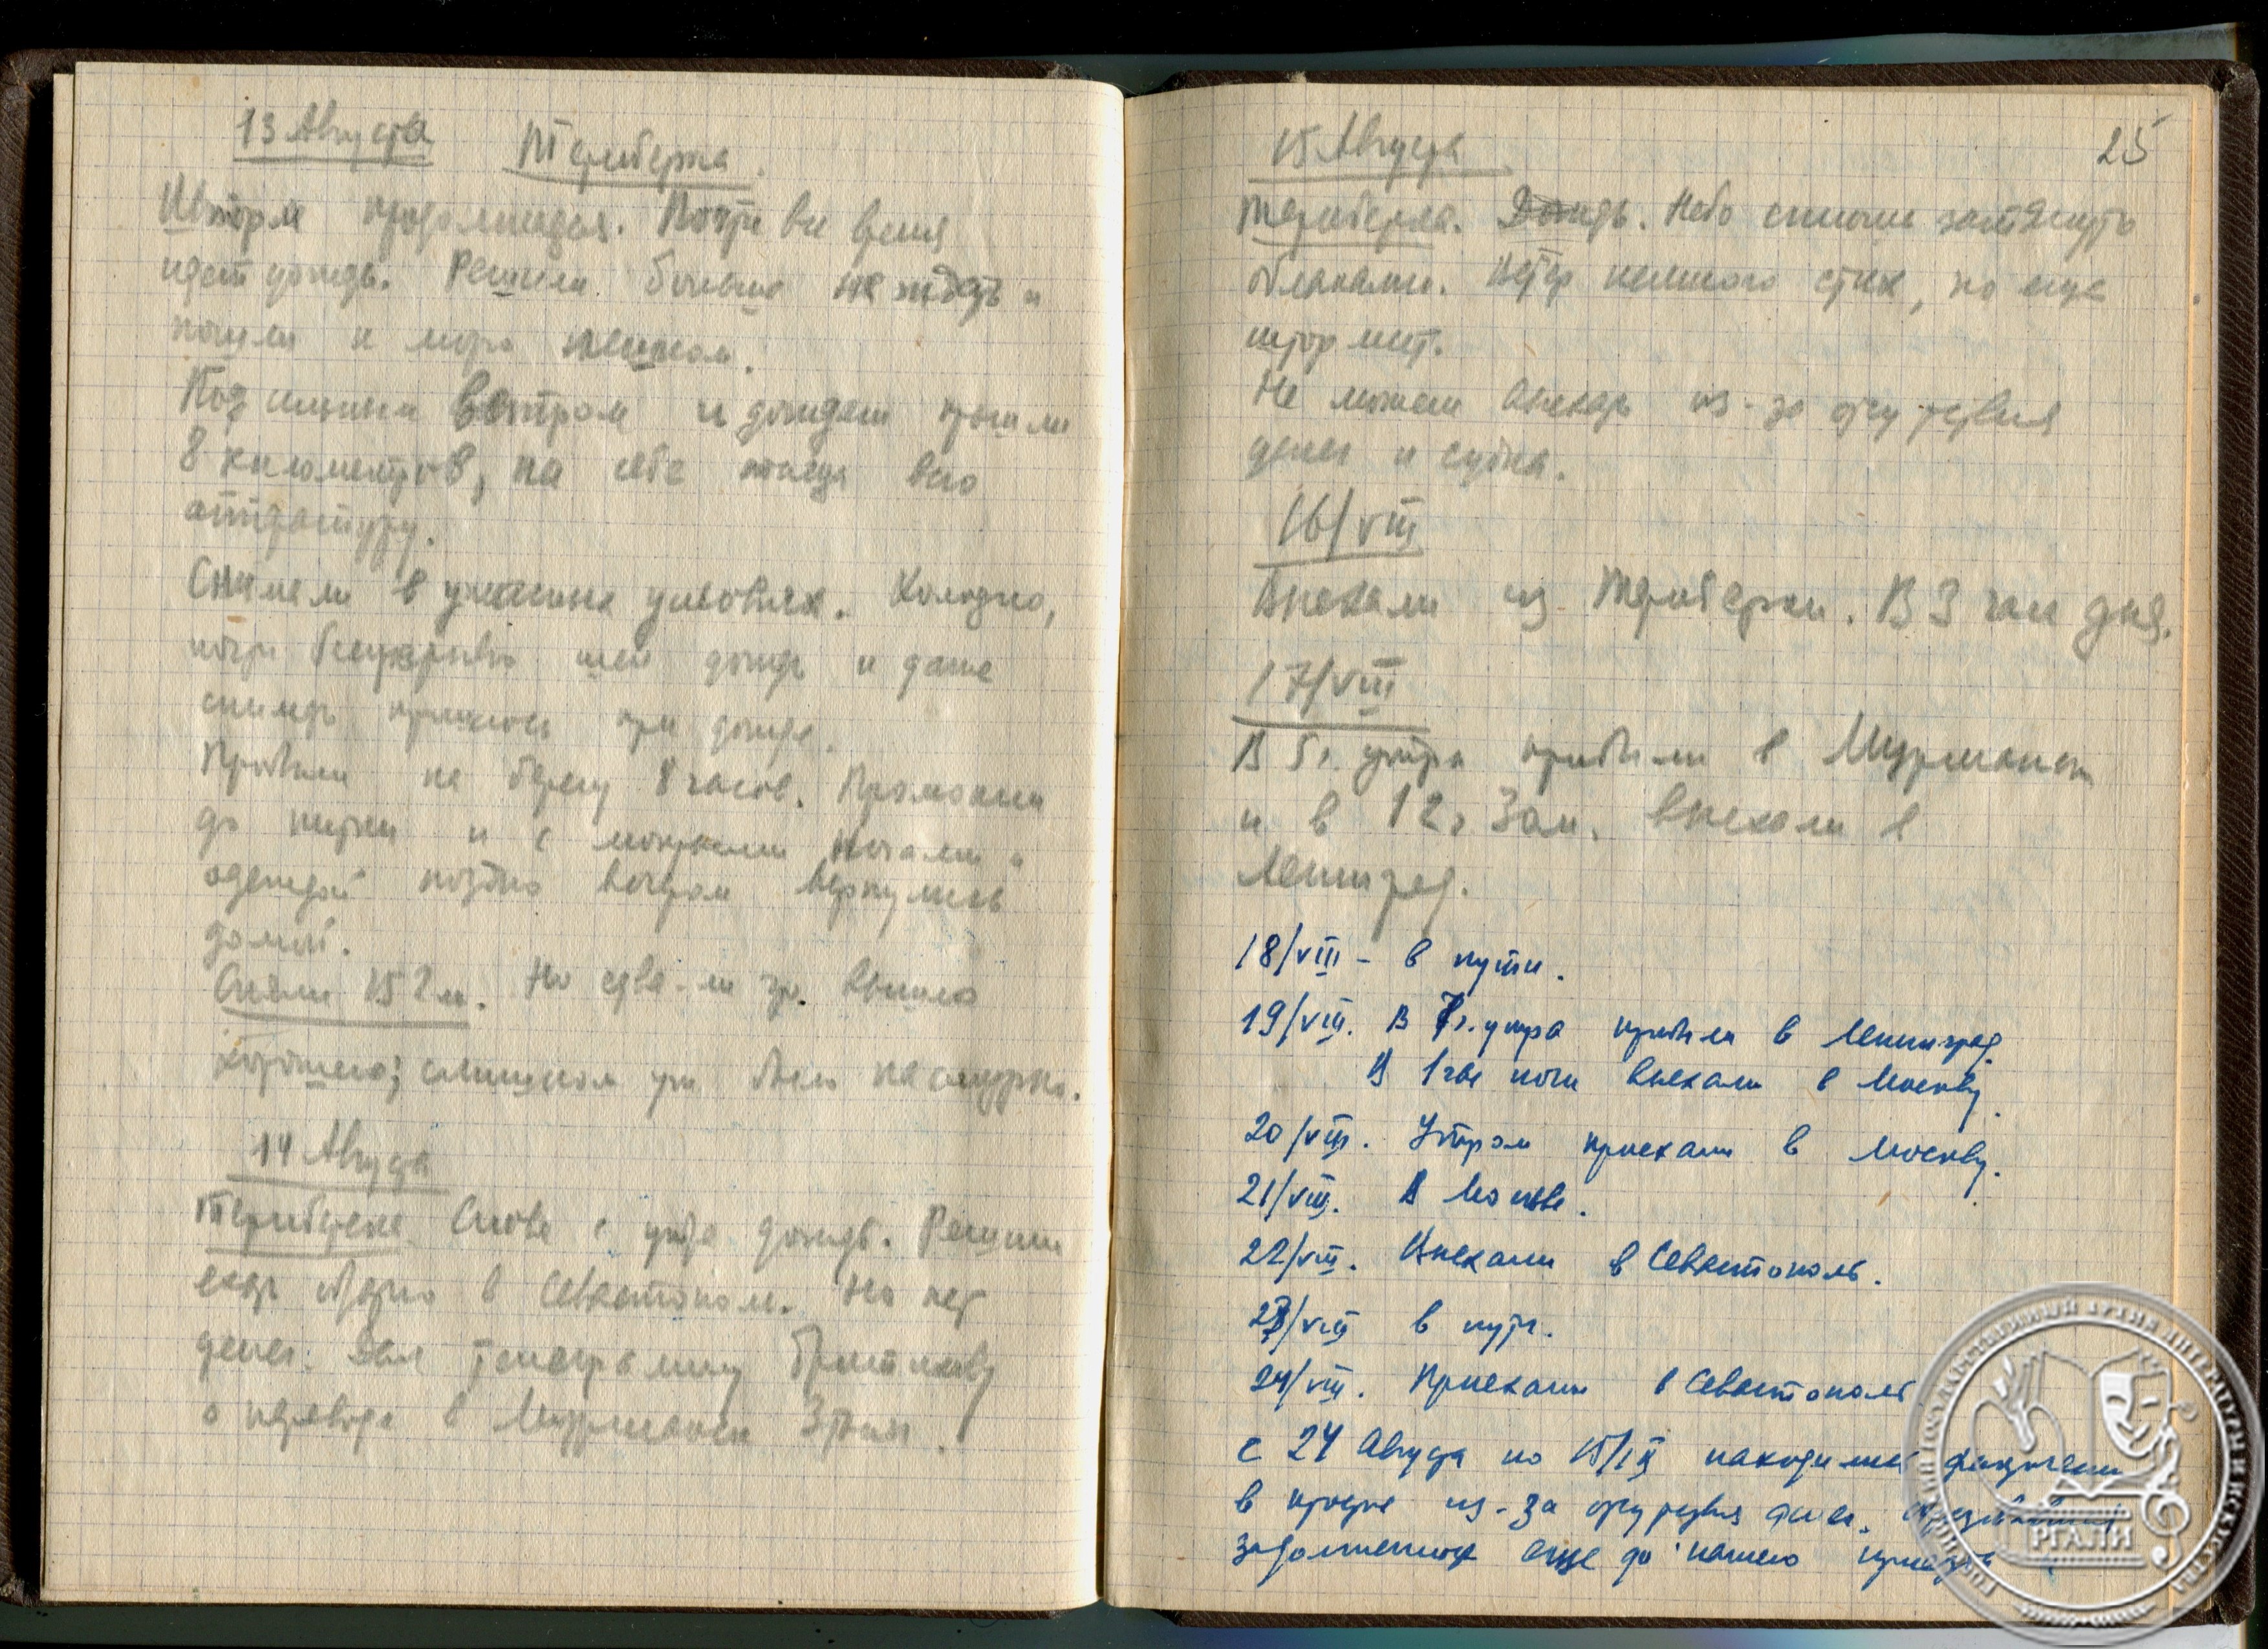 13 Августа Териберка.
Шторм продолжается. Почти все время
идет дождь. Решили больше не ждать и
пошли к морю пешком.
Под сильным ветром и дождем прошли
8 километров, на себе таща всю
аппаратуру.
Снимали в ужасных условиях. Холодно,
почти беспрерывно шел дождь и даже
снимать пришлось при дожде.
Пробыли на берегу 8 часов. Промокли
до нитки и с мокрыми ногами и
одеждой поздно вечером вернулись
домой.
Сняли 152 м. Но едва-ли что вышло
хорошего; слишком уж было пасмурно.
14 Августа
Териберка. Снова с утра дождь. Решили
ехать обратно в Севастополь. Но нет
денег. Дал телеграмму
о переводе в Мурманск
25
15 Августа
Териберка. Дождь. Небо сплошь затянуто
облаками. Ветер немного стих, но еще
штормит.
Не можем выехать из-за отсутствия
денег и судна.
16/VIII
Выехали из Териберки. В 3 часа дня.
17/VIII
В 5 г. утра прибыли в Мурманск
и в 12 г. 30 м. выехали в
Ленинград.
18/VIII - в пути.
19/VIII. В 7 г. утра прибыли в Ленинград.
В 1 час ночи выехали в Москву.
20/VIII. Утром приехали в Москву.
21/VIII. В Москве.
22/VIII. Выехали в Севастополь.
23/VIII в пути.
24/VIII. Приехали в Севастополь
с 24 Августа по 15/IX находились фактически
в простое из-за отсутствия денег.
задолженность еще до нашего приезда
РГАЛИ